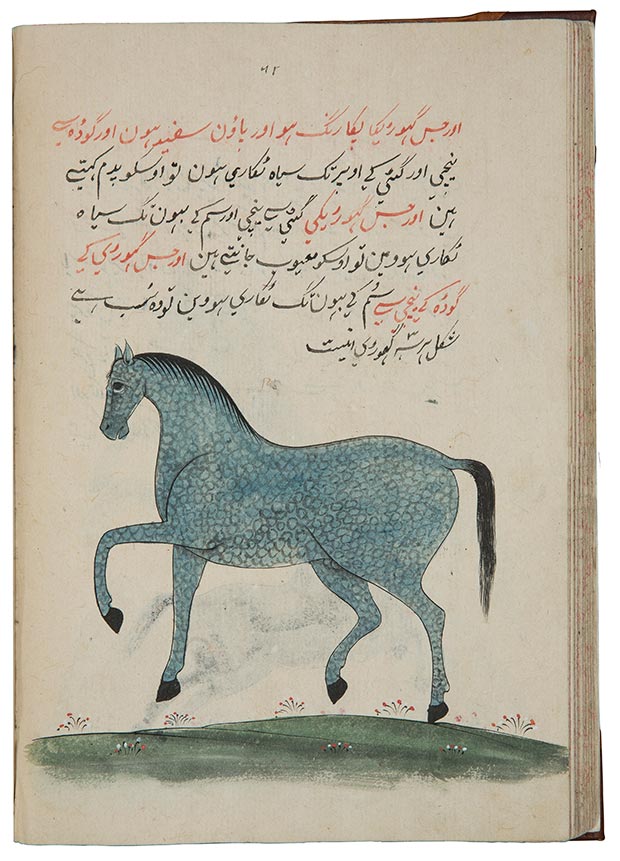 ۶۲
اور جس گھوڑیکا یکا رنگ ہو اور پاؤن سفید ہون اور گودہ سے
نیچی اور گٹی کے اوپر تک سیاہ نکاری ہون تو اوسکو پدم کہتے
ہین اور جس گھوڑیکی گٹی سے نیچی اور سم کے بہون تک سیاہ
نکاری ہووین تو اوسکو معیوب جانتے ہین اور جس گھوڑی کے
گودہ کے نیچی سے سُم کے بہون تک نکاری ہووین تو وہ سب ہے
شکل ہر سہ گھوڑی اینست